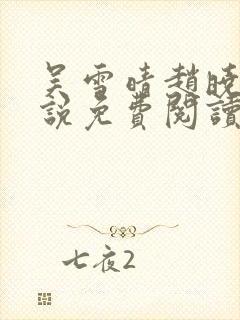 吴雪晴赵晓
说免费阅读
七夜2